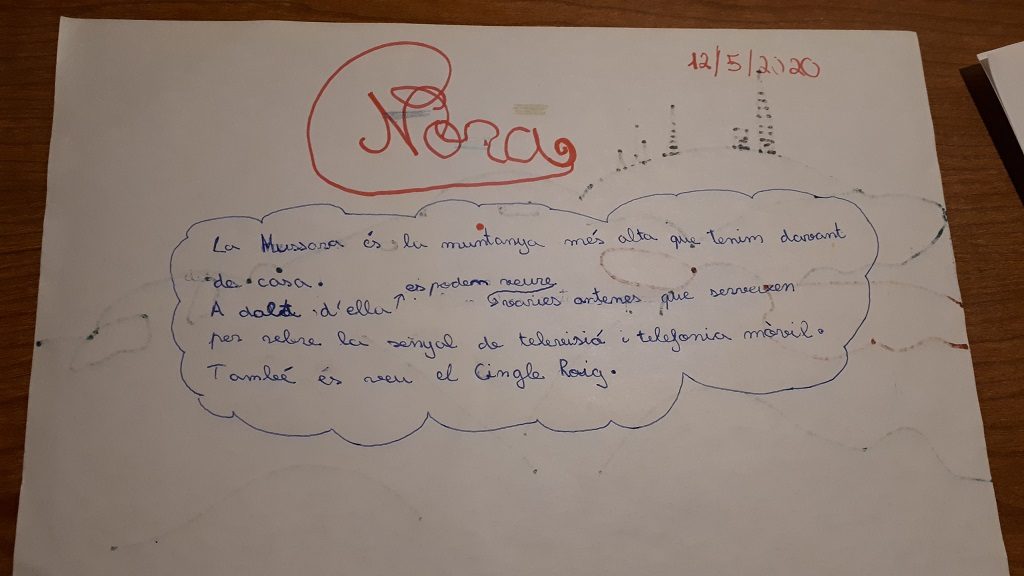 Nora
12/5/2020
La Mussara és la muntanya més alta que tenim davant
de casa.
es podem veure
A dalt d'ella varies antenes que serveixen
per rebre la senyal de televisió i telefonia mòvil.
També és veu el Cingle Roig.